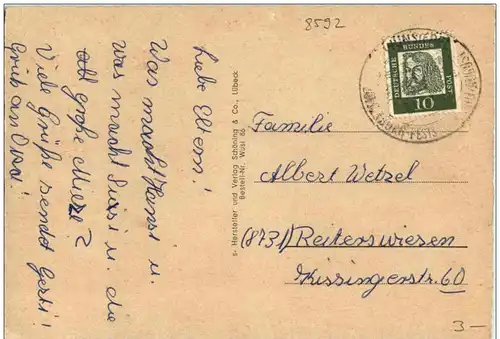 8592
Liebe Eltern!
Was macht Horst u.
was macht Susi u. die
alte große Mieze?
Viele Grüße sendet Gerti!
Gruß an Oma!
s- Hersteller und Verlag Schöning & Co., Lübeck
Bestell-Nr. Wüsl 66
DEUTSCHE
BUNDES
POST
10
Familie
Albert Wetzel
(8731) Reiterswiesen
Kissingerstr. 60
3-